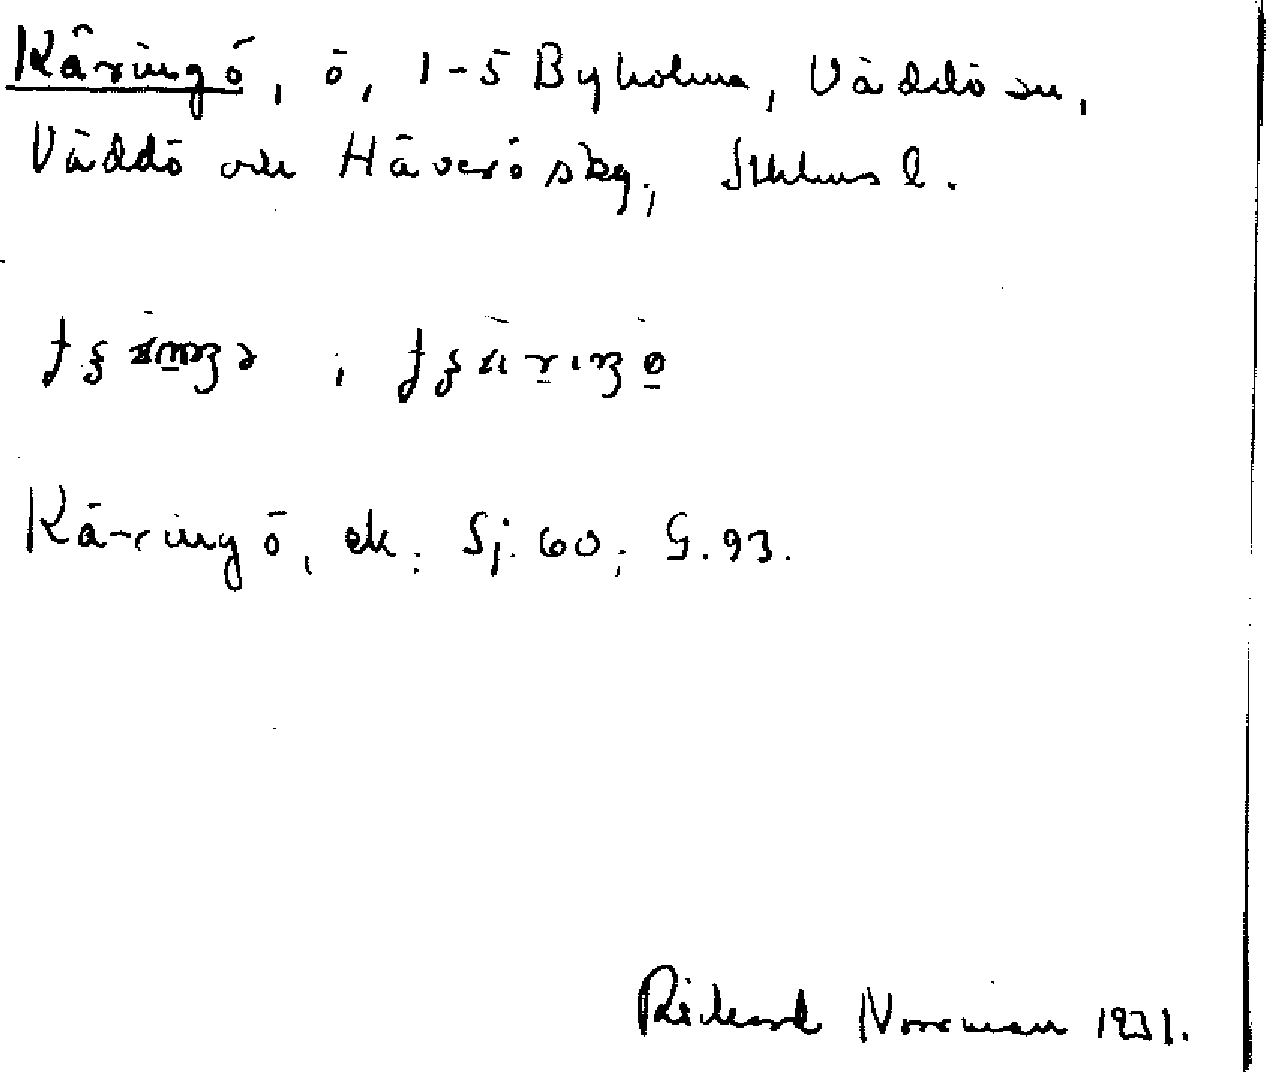 Käringö, ö, 1-5 Byholma, Väddö sn,
Väddö och Häverö skg, Sthlms l.
Käringö, ek. Sj. 60; G. 93.
Rickard Norrman 1931.